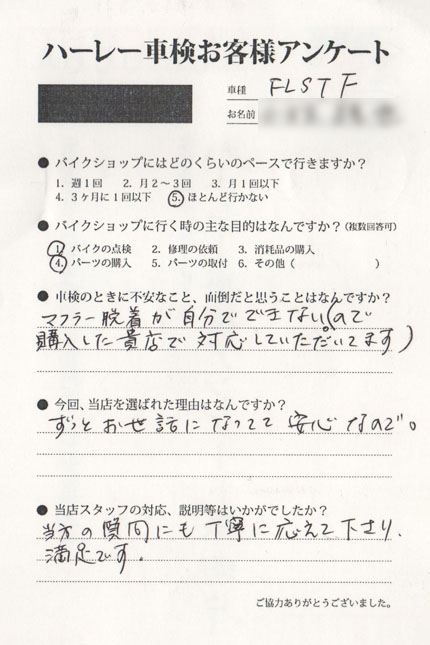 ハーレー車検お客様アンケート
車種 FLSTF
お名前
● バイクショップにはどのくらいのペースで行きますか?
1. 週1回 2. 月2〜3回 3. 月1回以下
4. 3ヶ月に1回以下 5. ほとんど行かない
● バイクショップに行く時の主な目的はなんですか?(複数回答可)
1. バイクの点検 2. 修理の依頼 3. 消耗品の購入
4. パーツの購入 5. パーツの取付 6. その他( )
● 車検のときに不安なこと、面倒だと思うことはなんですか?
マフラー脱着が自分でできない(ので
購入した貴店で対応していただいてます)
● 今回、当店を選ばれた理由はなんですか?
ずっとお世話になってて安心なので。
● 当店スタッフの対応、説明等はいかがでしたか?
当方の質問にも丁寧に応えて下さり、
満足です。
ご協力ありがとうございました。